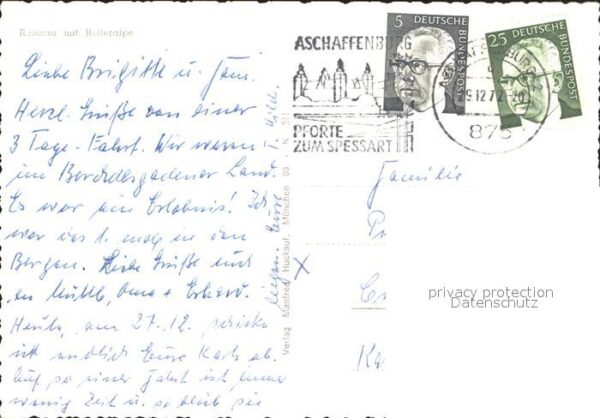 Ramsau mit Reiteralpe
Liebe Brigitte u. Fam.
Herzl. Grüße von einer
3 Tage-Fahrt. Wir waren
im Berchtesgadener Land.
Es war ein Erlebnis! Ich
war das 1. mal in den
Bergen. Liebe Grüße auch
an Mutti, Oma + Erhard.
Heute, am 27.12. schicke
ich endlich Eure Karte ab.
Auf so einer Fahrt ist immer
wenig Zeit u. so blieb sie
liegen. Eure
Verlag Manfred Huckauf, München 60 - N 311
ASCHAFFENBURG
PFORTE
ZUM SPESSART
5
DEUTSCHE
BUNDESPOST
25
DEUTSCHE
BUNDESPOST
29.12.72
875
Familie
privacy protection
Datenschutz